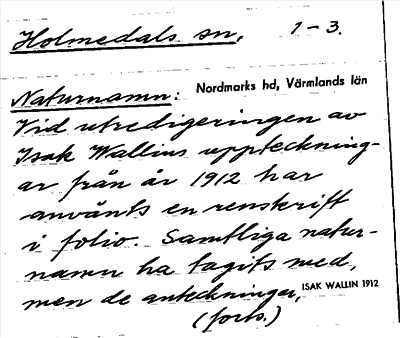 Holmedals sn, 1-3.
Naturnamn: Nordmarks hd, Värmlands län
Vid utredigeringen av
Isak Wallins uppteckning-
ar från år 1912 har
använts en renskrift
i folio. Samtliga natur-
namn ha tagits med,
men de anteckningar, ISAK WALLIN 1912
(forts.)